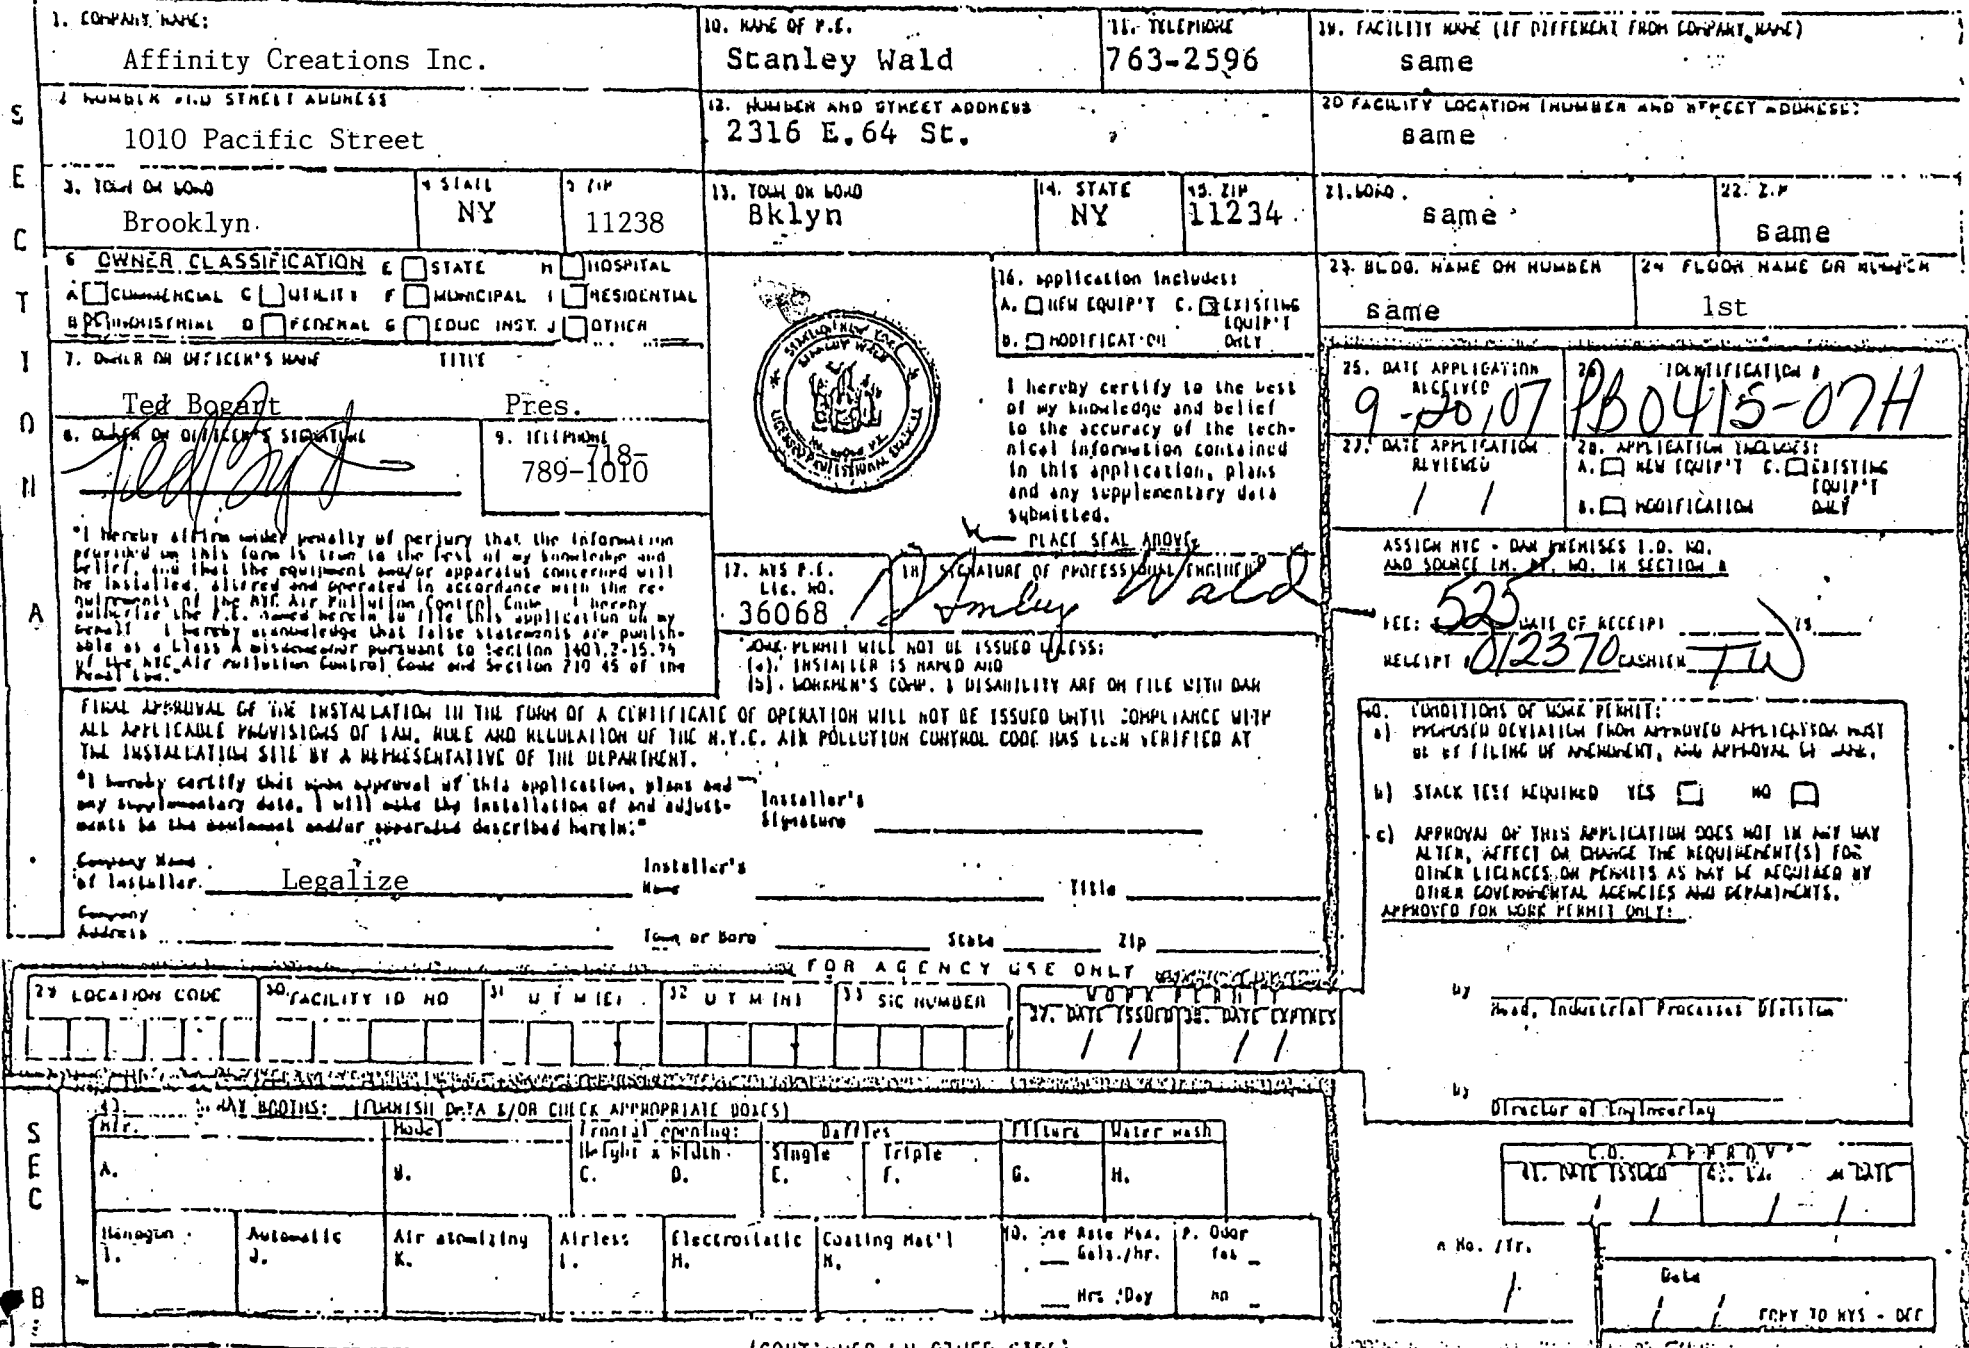 1. COMPANY NAME:
Affinity Creations Inc.
2. NUMBER AND STREET ADDRESS
1010 Pacific Street
3. TOWN OR BORO
Brooklyn
4 STATE
NY
5 ZIP
11238
6 OWNER CLASSIFICATION E STATE H HOSPITAL
A COMMERCIAL C UTILITY F MUNICIPAL I RESIDENTIAL
B INDUSTRIAL D FEDERAL G EDUC INST. J OTHER
7. OWNER OR OFFICER'S NAME TITLE
Ted Bogart Pres.
8. OWNER OR OFFICER'S SIGNATURE
Ted Bogart
9. TELEPHONE
718-
789-1010
"I hereby affirm under penalty of perjury that the information
provided on this form is true to the best of my knowledge and
belief, and that the equipment and/or apparatus concerned will
be installed, altered and operated in accordance with the re-
quirements of the NYC Air Pollution Control Code. I hereby
authorize the P.E. named herein to file this application on my
behalf. I hereby acknowledge that false statements are punish-
able as a Class A misdemeanor pursuant to Section 1403.2-15.75
of the NYC Air Pollution Control Code and Section 210.45 of the
Penal Law."
10. NAME OF P.E.
Stanley Wald
11. TELEPHONE
763-2596
12. NUMBER AND STREET ADDRESS
2316 E.64 St.
13. TOWN OR BORO
Bklyn
14. STATE
NY
15. ZIP
11234
16. application includes:
A. NEW EQUIP'T C. EXISTING
EQUIP'T
B. MODIFICATION ONLY
STANLEY WALD
LICENSED PROFESSIONAL ENGINEER
I hereby certify to the best
of my knowledge and belief
to the accuracy of the tech-
nical information contained
in this application, plans
and any supplementary data
submitted.
PLACE SEAL ABOVE
17. NYS P.E.
Lic. NO.
36068
18 SIGNATURE OF PROFESSIONAL ENGINEER
Stanley Wald
PERMIT WILL NOT BE ISSUED UNLESS:
(a). INSTALLER IS NAMED AND
(b). WORKMEN'S COMP. & DISABILITY ARE ON FILE WITH DAR
19. FACILITY NAME (IF DIFFERENT FROM COMPANY NAME)
same
20 FACILITY LOCATION (NUMBER AND STREET ADDRESS:
same
21. BORO.
same
22. ZIP
same
23. BLDG. NAME OR NUMBER
same
24 FLOOR NAME OR NUMBER
1st
25. DATE APPLICATION
RECEIVED
9-20,07
26. IDENTIFICATION #
PB0415-07H
27. DATE APPLICATION
REVIEWED
/ /
28. APPLICATION INCLUDES:
A. NEW EQUIP'T C. EXISTING
EQUIP'T
B. MODIFICATION ONLY
ASSIGN NYC - DAR PREMISES I.D. NO.
AND SOURCE NO. IN SECTION A
FEE: 525 DATE OF RECEIPT
RECEIPT # 012370 CASHIER TW
FINAL APPROVAL OF THE INSTALLATION IN THE FORM OF A CERTIFICATE OF OPERATION WILL NOT BE ISSUED UNTIL COMPLIANCE WITH
ALL APPLICABLE PROVISIONS OF LAW, RULE AND REGULATION OF THE N.Y.C. AIR POLLUTION CONTROL CODE HAS BEEN VERIFIED AT
THE INSTALLATION SITE BY A REPRESENTATIVE OF THE DEPARTMENT.
"I hereby certify that upon approval of this application, plans and
any supplementary data, I will make the installation of and adjust-
ments to the equipment and/or apparatus described herein."
Installer's
Signature
Company Name
of Installer. Legalize
Installer's
Name
Title
Company
Address
Town or Boro State Zip
40. CONDITIONS OF WORK PERMIT:
a) PROPOSED DEVIATION FROM APPROVED APPLICATION MUST
BE BY FILING OF AMENDMENT, AND APPROVAL OF
b) STACK TEST REQUIRED YES NO
c) APPROVAL OF THIS APPLICATION DOES NOT IN ANY WAY
ALTER, AFFECT OR CHANGE THE REQUIREMENT(S) FOR
OTHER LICENCES OR PERMITS AS MAY BE REQUIRED BY
OTHER GOVERNMENTAL AGENCIES AND DEPARTMENTS.
APPROVED FOR WORK PERMIT ONLY:
by
Head, Industrial Processes Division
by
Director of Engineering
FOR AGENCY USE ONLY
29 LOCATION CODE
30 FACILITY ID NO
31 U T M (E)
32 U T M (N)
33 SIC NUMBER
WORK PERMIT
37. DATE ISSUED
38. DATE EXPIRES
/ / / /
SPRAY BOOTHS: (FURNISH DATA &/OR CHECK APPROPRIATE BOXES)
Mfr. Model Frontal opening: Baffles Filters Water wash
Height x Width Single Triple
A. B. C. D. E. F. G. H.
Automatic Air atomizing Airless Electrostatic Coating Mat'l
J. K. L. M. N.
Use Rate Max.
Gals./hr.
Hrs /Day
P. Odor
Yes
no
C.O. APPROV
DATE ISSUED
DATE
/ / / /
No. /Yr.
/
Date
/ /
COPY TO NYS - DEC
SECTION A
SEC B
(CONTINUED ON OTHER SIDE)